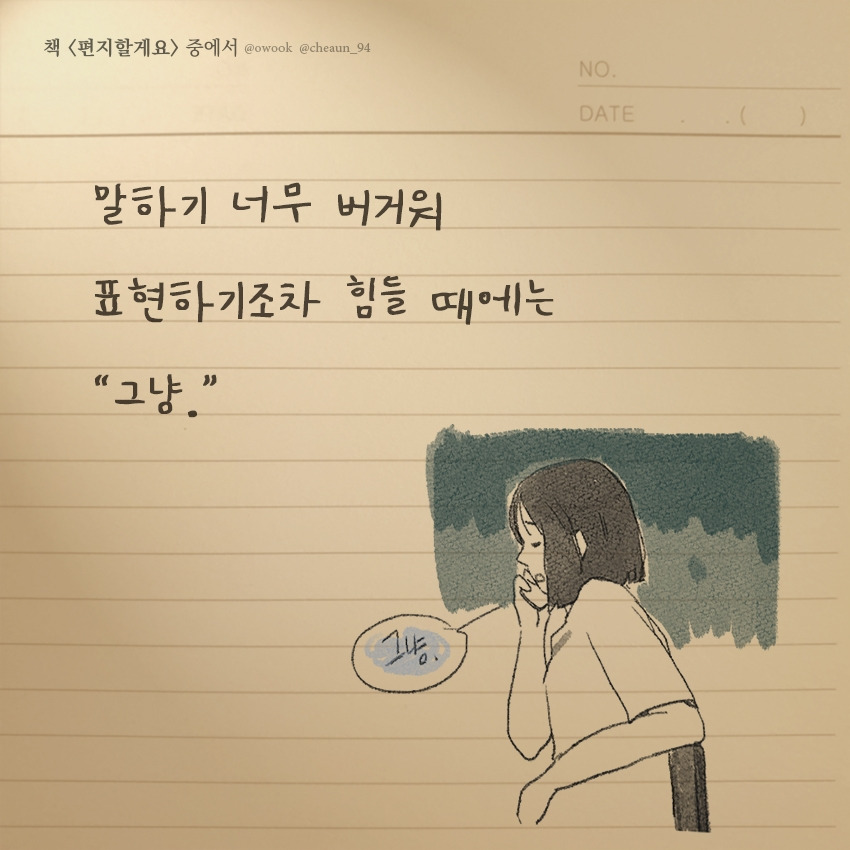 책 <편지할게요> 중에서 @owook @cheaun_94
NO.
DATE . . ( )
말하기 너무 버거워
표현하기조차 힘들 때에는
“그냥.”
그냥.